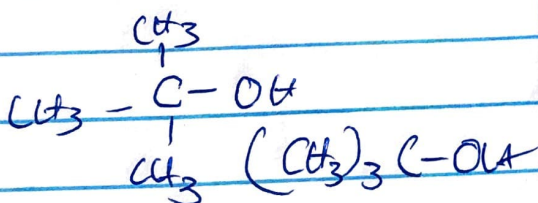 CH3
CH3 - C - OH
CH3 (CH3)3 C-OH